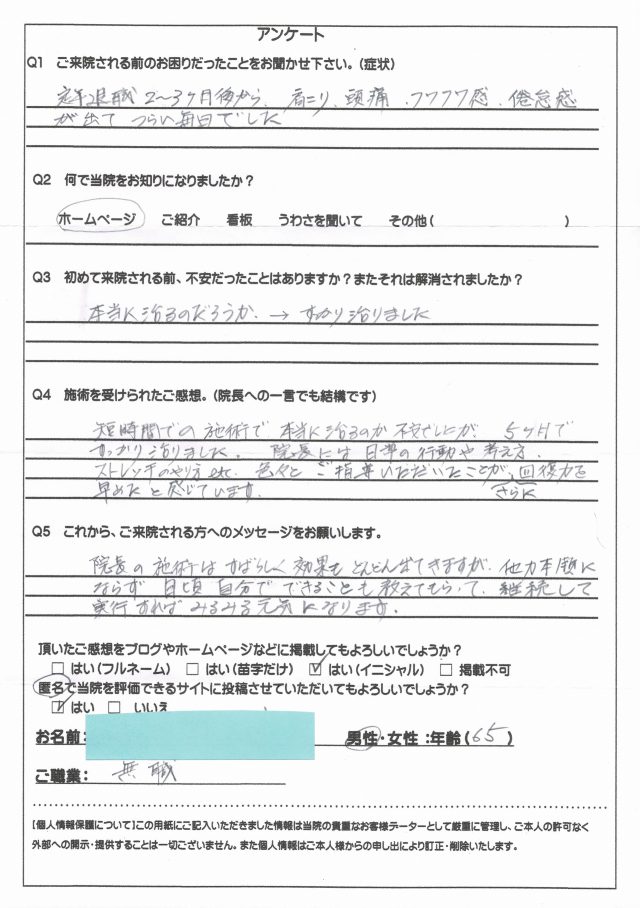 アンケート
Q1 ご来院される前のお困りだったことをお聞かせ下さい。(症状)
定年退職 2〜3ヶ月後から、肩こり、頭痛、フワフワ感、倦怠感
が出て つらい毎日でした
Q2 何で当院をお知りになりましたか?
ホームページ ご紹介 看板 うわさを聞いて その他( )
Q3 初めて来院される前、不安だったことはありますか?またそれは解消されましたか?
本当に治るのだろうか、→ すっかり治りました
Q4 施術を受けられたご感想。(院長への一言でも結構です)
短時間での施術で 本当に治るのか 不安でしたが 5ヶ月で
すっかり治りました。 院長には 日常の行動や考え方、
ストレッチのやり方 etc. 色々と ご指導いただいたことが、回復力を
さらに
早めたと感じています。
Q5 これから、ご来院される方へのメッセージをお願いします。
院長の施術はすばらしく 効果も どんどん出てきますが、他力本願に
ならず 日頃 自分で できることも 教えてもらって、継続して
実行すれば みるみる元気になります。
頂いたご感想をブログやホームページなどに掲載してもよろしいでしょうか?
□ はい(フルネーム) □ はい(苗字だけ) ☑ はい(イニシャル) □ 掲載不可
匿名で当院を評価できるサイトに投稿させていただいてもよろしいでしょうか?
☑ はい □ いいえ
お名前: 男性・女性 :年齢(65)
ご職業: 無職
[個人情報保護について]この用紙にご記入いただきました情報は当院の貴重なお客様データーとして厳重に管理し、ご本人の許可なく
外部への開示・提供することは一切ございません。また個人情報はご本人様からの申し出により訂正・削除いたします。